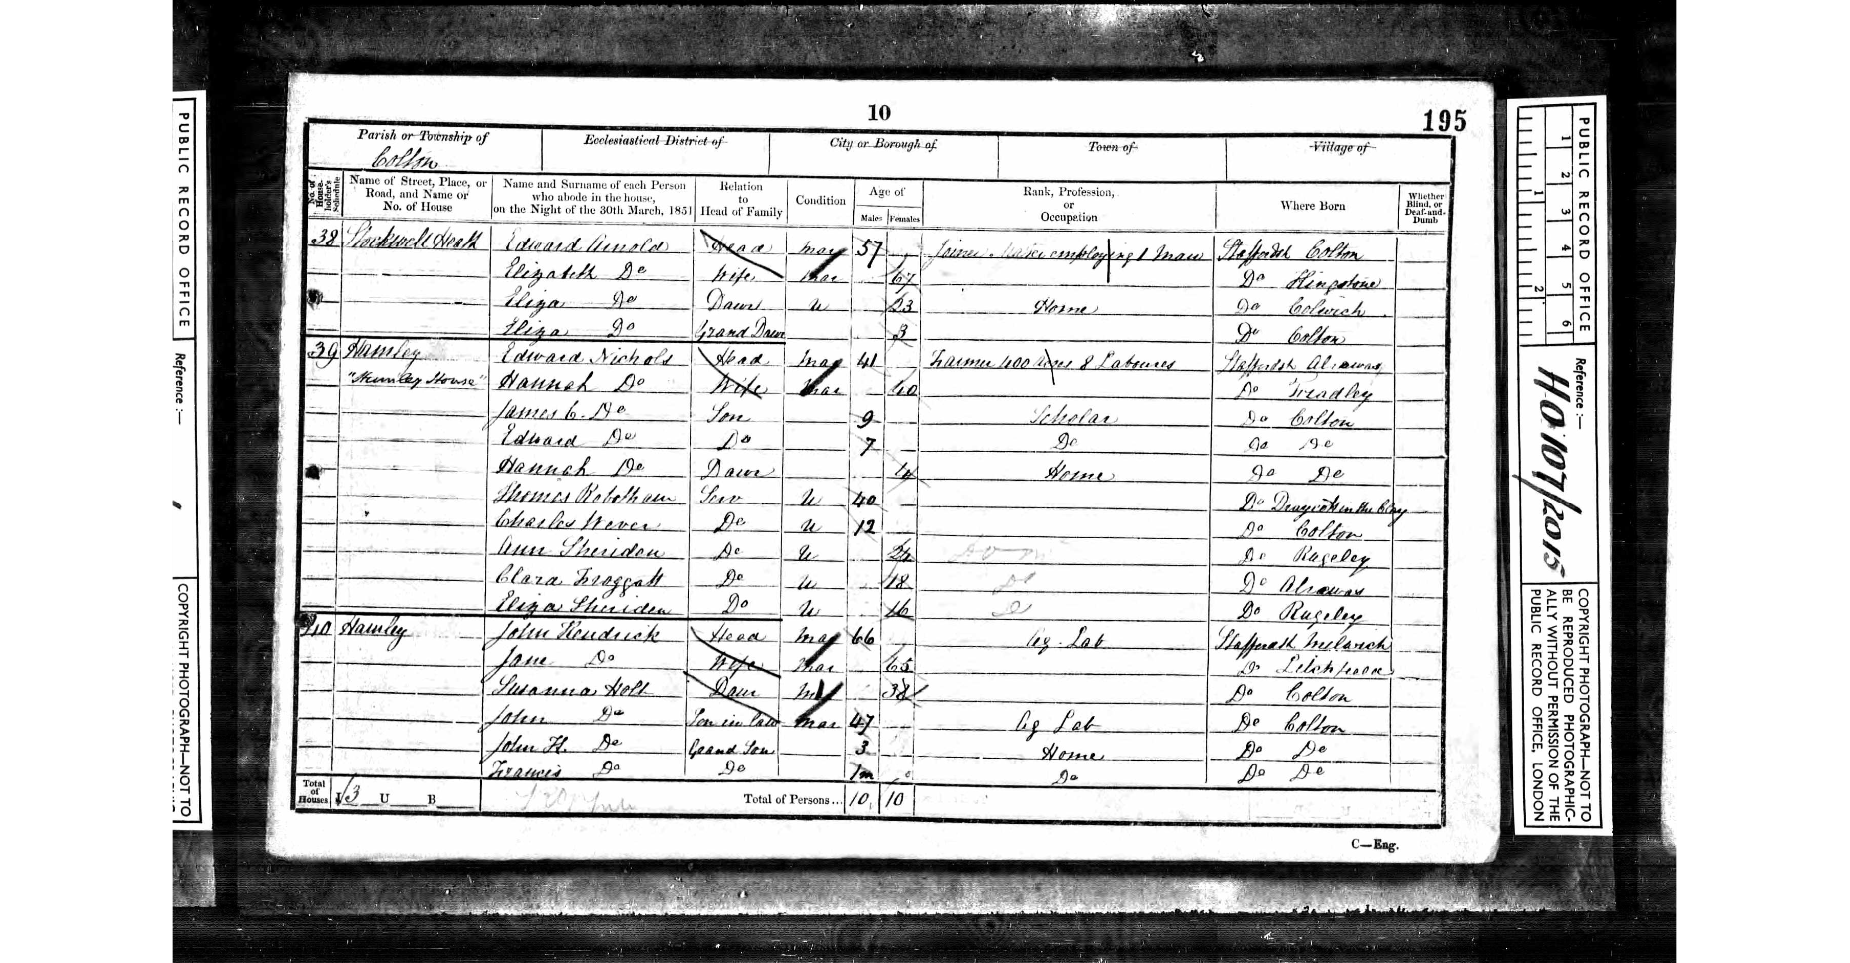 10
195
Parish or Township of
Ecclesiastical District of
City or Borough of
Town of
Village of
Colton
No. of House-holder's Schedule
Name of Street, Place, or Road, and Name or No. of House
Name and Surname of each Person who abode in the house, on the Night of the 30th March, 1851
Relation to Head of Family
Condition
Age of
Males
Females
Rank, Profession, or Occupation
Where Born
Whether Blind, or Deaf-and-Dumb
38 Stockwell Heath Edward Arnold Head Mar 57 Joiner employing 1 Man Staffordsh Colton
Elizabeth Do Wife Mar 67 Do Hingstone
Eliza Do Daur U 23 Home Do Colwich
Eliza Do Grand Daur 3 Do Colton
39 Hamley Edward Nichols Head Mar 41 Farmer 400 Acres 8 Laboures Staffordsh Alrewas
"Hamley House" Hannah Do Wife Mar 40 Do Fradley
James C. Do Son 9 Scholar Do Colton
Edward Do Do 7 Do Do Do
Hannah Do Daur 4 Home Do Do
Thomas Robotham Serv U 40 Do Draycott in the Clay
Charles Wever Do U 12 Do Colton
Ann Sheridon Do U 24 Do Rugeley
Clara Froggatt Do U 18 Do Do Alrewas
Eliza Sheriden Do U 16 Do Rugeley
40 Hamley John Kendrick Head Mar 66 Ag. Lab Staffordsh Milwich
Jane Do Wife Mar 65 Do
Susanna Holt Daur M 38 Do Colton
John Do Son in law Mar 47 Ag Lab Do Colton
John K. Do Grand Son 3 Home Do Do
Francis Do Do 1m Do Do Do
Total of Houses I 3 U B Total of Persons... 10 10
C—Eng.
PUBLIC RECORD OFFICE
Reference :—
COPYRIGHT PHOTOGRAPH—NOT TO
PUBLIC RECORD OFFICE
1 2 3 4 5 6
1 2
Reference :—
HO 107/2015
COPYRIGHT PHOTOGRAPH—NOT TO
BE REPRODUCED PHOTOGRAPHIC-
ALLY WITHOUT PERMISSION OF THE
PUBLIC RECORD OFFICE, LONDON